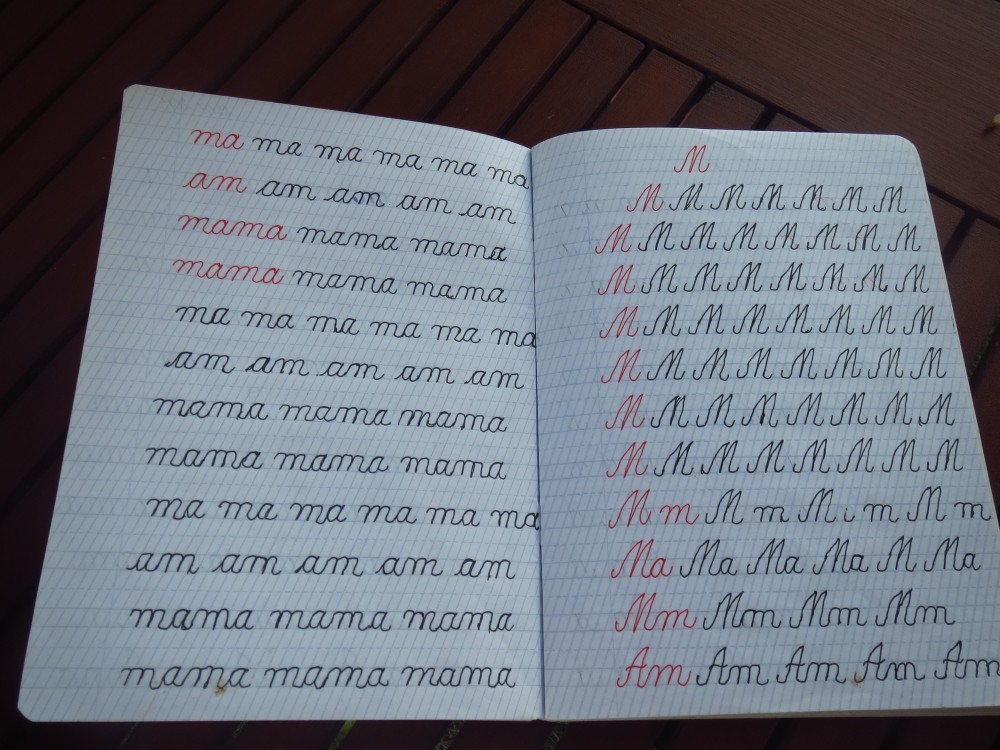 ma ma ma ma ma ma
am am am am am
mama mama mama
mama mama mama
ma ma ma ma ma ma
am am am am am
mama mama mama
mama mama mama
ma ma ma ma ma ma
am am am am am
mama mama mama
mama mama mama
M
M M M M M M M
M M M M M M M M
M M M M M M M M
M M M M M M M M
M M M M M M M M
M M M M M M M M
M M M M M M M M
M m M m M i m M m
Ma Ma Ma Ma M Ma
Mm Mm Mm Mm
Am Am Am Am Am